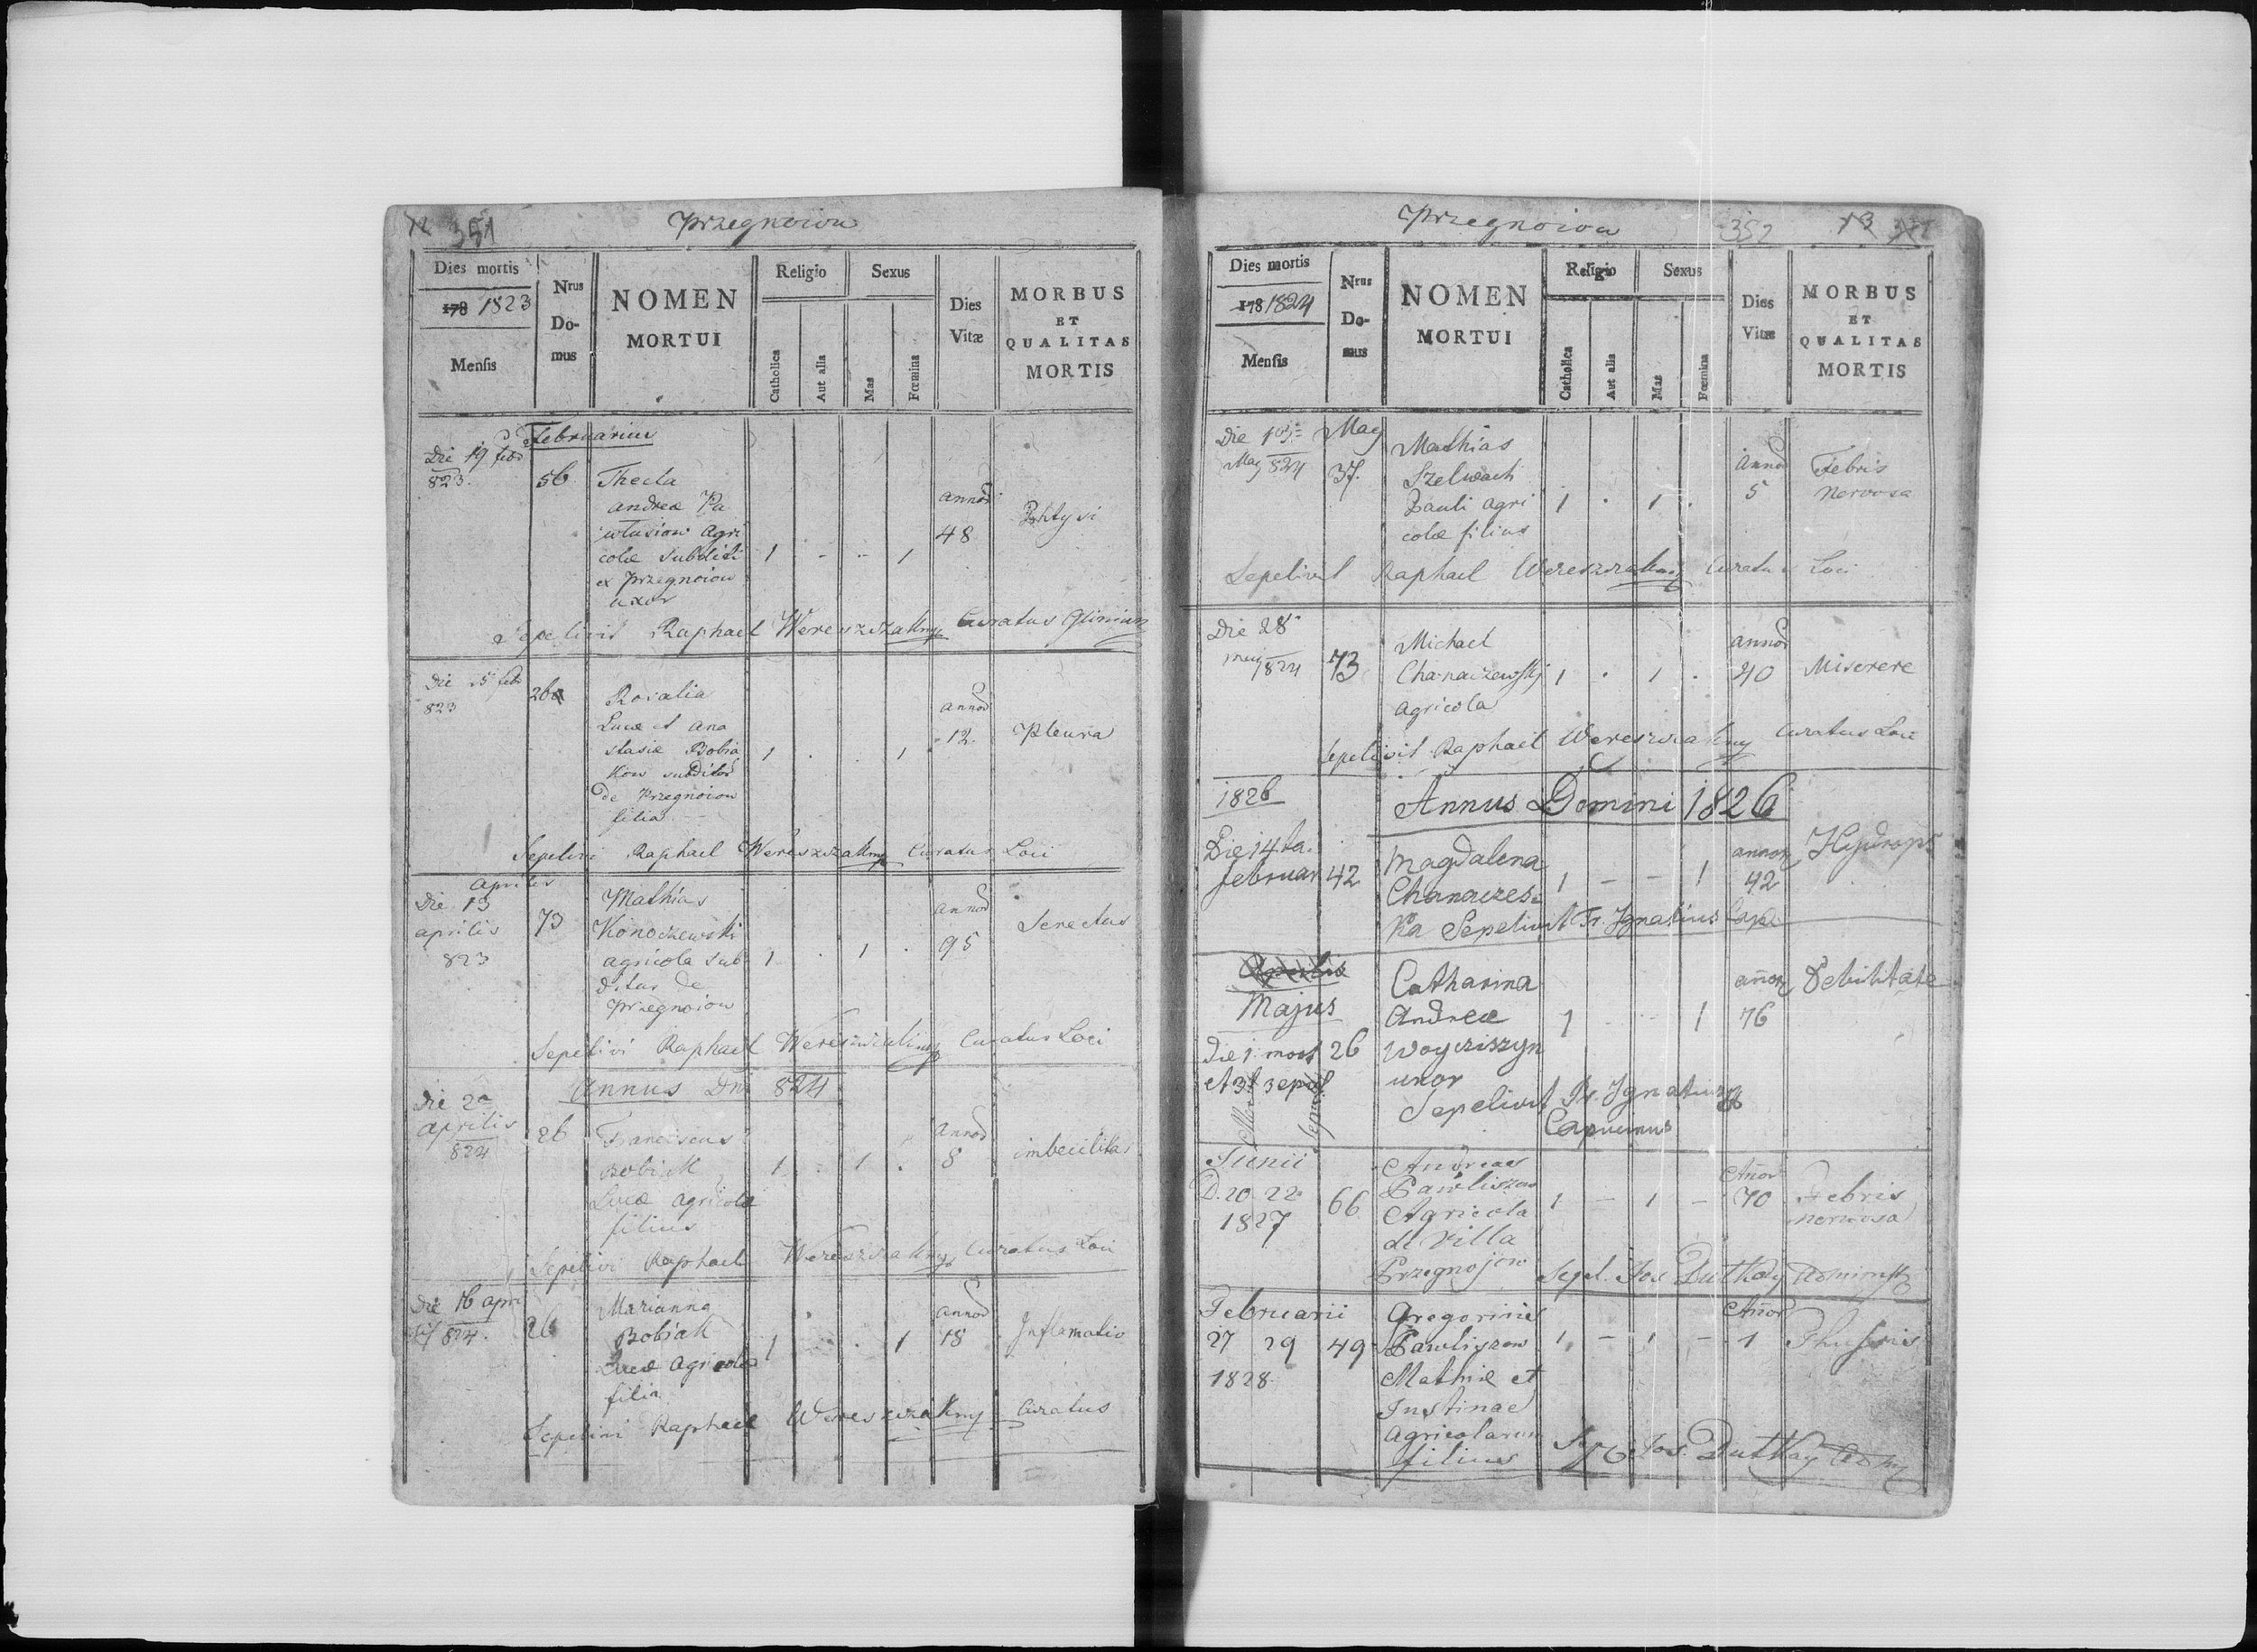 351
Przegnoiow
Dies mortis
178 1823
Mensis
Nrus
Do-
mus
NOMEN
MORTUI
Religio
Catholica
Aut alia
Sexus
Mas
Fœmina
Dies
Vitæ
MORBUS
ET
QUALITAS
MORTIS
Februarius
Die 19 febr
823.
56
Thecla
Andreæ Pa
wlusiow Agri
colæ subditi
ex Przegnoiow
uxor
1 - - 1
annor
48
Phtysi
Sepelivit Raphael Wereszczakny Curatus Glinian
Die 25 febr
823
26
Rosalia
Lucæ et Ana
stasiæ Bobia
kow subditor
de Przegnoiow
filia
1 . . 1
annor
12
Pleura
Sepelivi Raphael Wereszczakny Curatus Loci
Aprilis
Die 13
aprilis
823
73
Mathias
Konoczewski
agricola sub
ditus de
Przegnoiow
1 . 1 .
annor
95
Senectus
Sepelivi Raphael Wereszczakny Curatus Loci
Annus Dni 824
Die 2a
aprilis
824
26
Franciscus
Bobiak
Lucæ agricolæ
filius
1 . 1 .
annor
8
imbecilitas
Sepelivi Raphael Wereszczakny Curatus Loci
Die 16 apri
824.
26
Marianna
Bobiak
Lucæ Agricolæ
filia
1 . . 1
annor
18
Inflamatio
Sepelivi Raphael Wereszczakny Curatus
Przegnoiow
352
13
Dies mortis
178 1824
Mensis
Nrus
Do-
mus
NOMEN
MORTUI
Religio
Catholica
Aut alia
Sexus
Mas
Fœmina
Dies
Vitæ
MORBUS
ET
QUALITAS
MORTIS
Maj
Die
Maj 824
37.
Mathias
Szelwach
Pauli agri
colæ filius
1 . 1 .
annor
5
Febris
nervosa
Sepelivit Raphael Wereszczakny Curatus Loci
Die 28
maij 1824
73
Michael
Chanaczewskj
agricola
1 . 1 .
annor
40
Miserere
Sepelivit Raphael Wereszczakny Curatus Loci
1826
Annus Domini 1826
Die 14ta
februar
42
Magdalena
Chanaczes-
ka Sepelivit Fr. Ignatius Capu.
1 - - 1
annor
42
Hydrops
Aprilis
Majus
Die 1 mort
et 3 sepul
26
Catharina
Andreæ
Woycziszyn
uxor
1 - - 1
añor
76
Debilitate
Sepelivit Pr. Ignatius
Capucinus
Junii
D. 20 22
1827
66
Andreas
Pawliszow
Agricola
de Villa
Przegnojow
1 - 1 -
Añor
70
Febris
nervosa
Sepel. Jos Duthay Administr
Februarii
27 29
1828
49
Gregorius
Pawliszow
Mathiæ et
Justinae
Agricolarum
filius
1 - 1 -
Añor
1
Sep. Jos. Duthay Adm